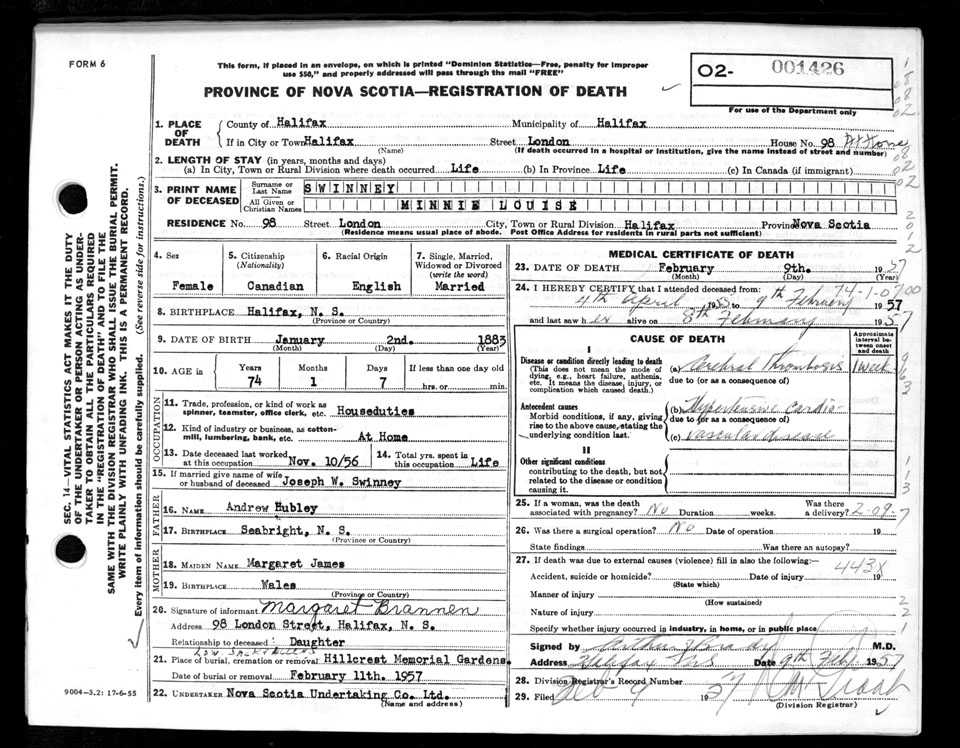 FORM 6
This form, if placed in an envelope, on which is printed "Dominion Statistics—Free, penalty for improper
use $50," and properly addressed will pass through the mail "FREE"
PROVINCE OF NOVA SCOTIA—REGISTRATION OF DEATH
O2- 001426
For use of the Department only
SEC. 14—VITAL STATISTICS ACT MAKES IT THE DUTY
OF THE UNDERTAKER OR PERSON ACTING AS UNDER-
TAKER TO OBTAIN ALL THE PARTICULARS REQUIRED
IN THE "REGISTRATION OF DEATH" AND TO FILE THE
SAME WITH THE DIVISION REGISTRAR WHO SHALL ISSUE THE BURIAL PERMIT.
WRITE PLAINLY WITH UNFADING INK. THIS IS A PERMANENT RECORD.
Every item of information should be carefully supplied. (See reverse side for instructions.)
1. PLACE OF DEATH
County of Halifax Municipality of Halifax
If in City or Town Halifax Street London House No. 98
(Name) (If death occurred in a hospital or institution, give the name instead of street and number)
2. LENGTH OF STAY (in years, months and days)
(a) In City, Town or Rural Division where death occurred Life (b) In Province Life (c) In Canada (if immigrant)
3. PRINT NAME OF DECEASED
Surname or Last Name SWINNEY
All Given or Christian Names MINNIE LOUISE
RESIDENCE No. 98 Street London City, Town or Rural Division Halifax Province Nova Scotia
(Residence means usual place of abode. Post Office Address for residents in rural parts not sufficient)
4. Sex
Female
5. Citizenship (Nationality)
Canadian
6. Racial Origin
English
7. Single, Married, Widowed or Divorced (write the word)
Married
8. BIRTHPLACE Halifax, N. S.
(Province or Country)
9. DATE OF BIRTH January 2nd. 1883
(Month) (Day) (Year)
10. AGE in Years Months Days If less than one day old
74 1 7 hrs. or min.
OCCUPATION
11. Trade, profession, or kind of work as
spinner, teamster, office clerk, etc. Houseduties
12. Kind of industry or business, as cotton-
mill, lumbering, bank, etc. At Home
13. Date deceased last worked at this occupation Nov. 10/56
14. Total yrs. spent in this occupation Life
15. If married give name of wife
or husband of deceased Joseph W. Swinney
FATHER
16. NAME Andrew Hubley
17. BIRTHPLACE Seabright, N. S.
(Province or Country)
MOTHER
18. MAIDEN NAME Margaret James
19. BIRTHPLACE Wales
(Province or Country)
20. Signature of informant Margaret Brannen
Address 98 London Street, Halifax, N. S.
Relationship to deceased: Daughter
21. Place of burial, cremation or removal Hillcrest Memorial Gardens.
Date of burial or removal February 11th. 1957
22. UNDERTAKER Nova Scotia Undertaking Co. Ltd.
(Name and address)
9004—3.2: 17-6-55
MEDICAL CERTIFICATE OF DEATH
23. DATE OF DEATH February 9th. 1957
(Month) (Day) (Year)
24. I HEREBY CERTIFY that I attended deceased from: 74-1-07 00
4th April to 9th February 1957
and last saw her alive on 8th February 1957
CAUSE OF DEATH
Approximate interval between onset and death
I
Disease or condition directly leading to death
(This does not mean the mode of dying, e.g., heart failure, asthenia, etc. It means the disease, injury, or complication which caused death.)
(a) Cerebral Thrombosis 1 week
due to (or as a consequence of)
Antecedent causes
Morbid conditions, if any, giving rise to the above cause, stating the underlying condition last.
(b) Hypertensive Cardio-
due to (or as a consequence of)
(c) vascular disease
II
Other significant conditions
contributing to the death, but not related to the disease or condition causing it.
25. If a woman, was the death associated with pregnancy? No Duration weeks. Was there a delivery? 2-09-7
26. Was there a surgical operation? No Date of operation 19
State findings Was there an autopsy?
27. If death was due to external causes (violence) fill in also the following:—
443X
Accident, suicide or homicide? Date of injury 19
(State which)
Manner of injury
(How sustained)
Nature of injury
Specify whether injury occurred in industry, in home, or in public place
Signed by M.D.
Address Halifax Date 9th Feb. 1957
28. Division Registrar's Record Number
29. Filed Feb 9 1957
(Division Registrar)